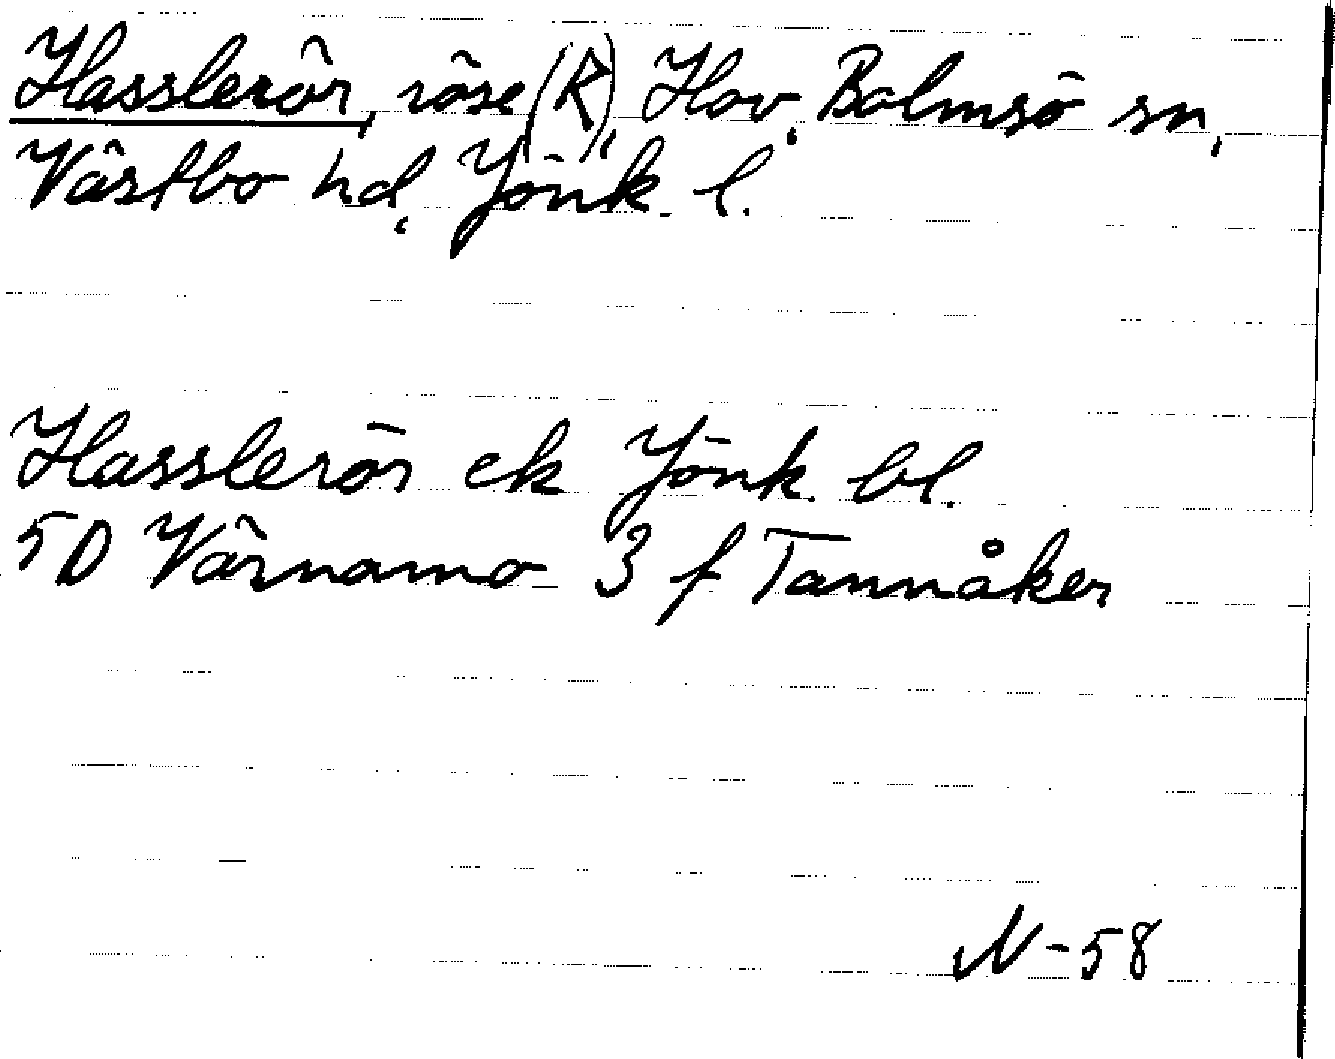 Hasslerör, röse (R), Hov, Bolmsö sn,
Västbo hd, Jönk. l.
Hasslerör ek Jönk. bl.
5D Värnamo 3 f Tannåker
N-58